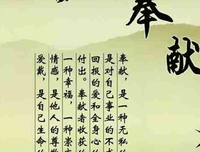 奉献
奉献，是一种无私的
是对自己事业的不求
回报的爱和全身心的
付出。奉献者收获的
一种幸福，一种崇
情感，是他人的尊敬
爱戴，是自己生命的